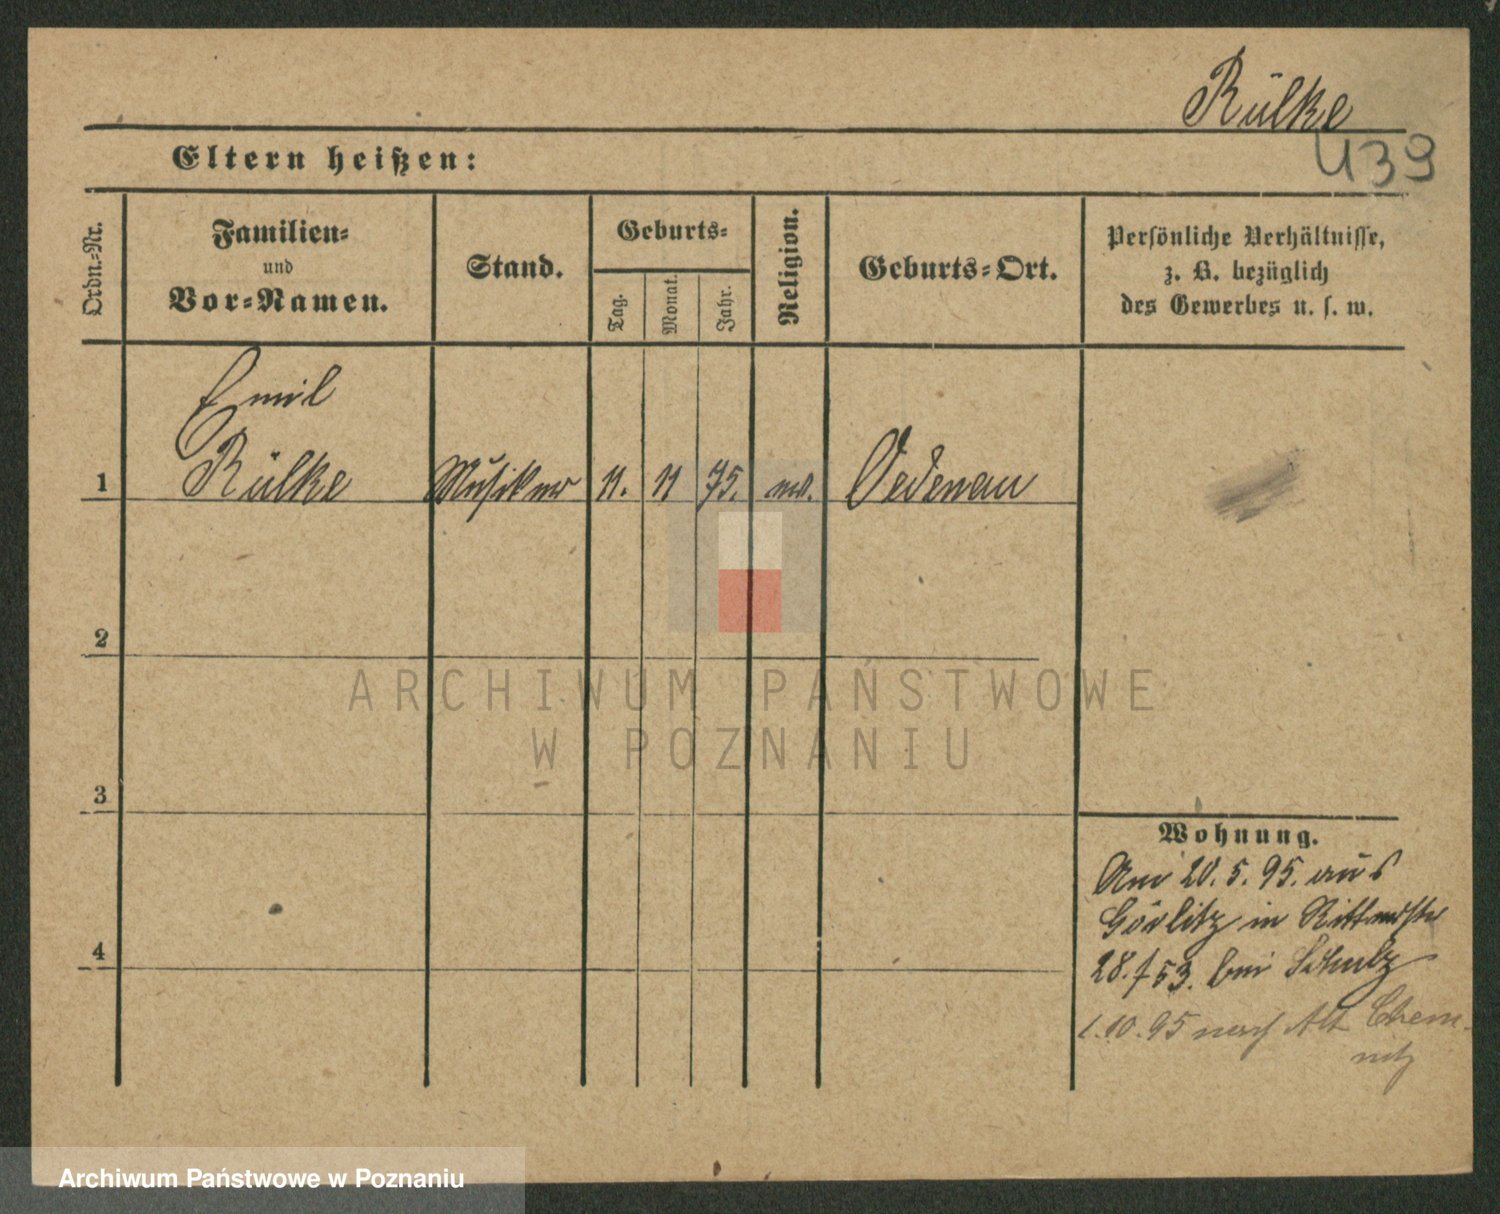 Rülke
439
Eltern heißen:
Ordn.-Nr.
Familien-
und
Vor-Namen.
Stand.
Geburts-
Tag.
Monat.
Jahr.
Religion.
Geburts-Ort.
Persönliche Verhältnisse,
z. B. bezüglich
des Gewerbes u. s. w.
Emil
1 Rülke Musiker 11. 11 75. ev. Oedenau
2
ARCHIWUM PAŃSTWOWE
W POZNANIU
3
4
Wohnung.
20. 5. 95. aus
Görlitz in
28. 53. bei Schulz
1.10.95 nach Alt Chem-
nitz
Archiwum Państwowe w Poznaniu